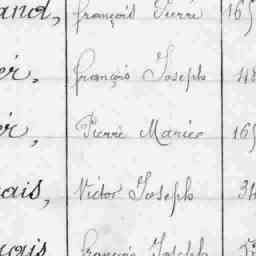 and, François Pierre 165
er, François Joseph 48
er, Pierre Marie 165
ais, Victor Joseph 34
çais François Joseph